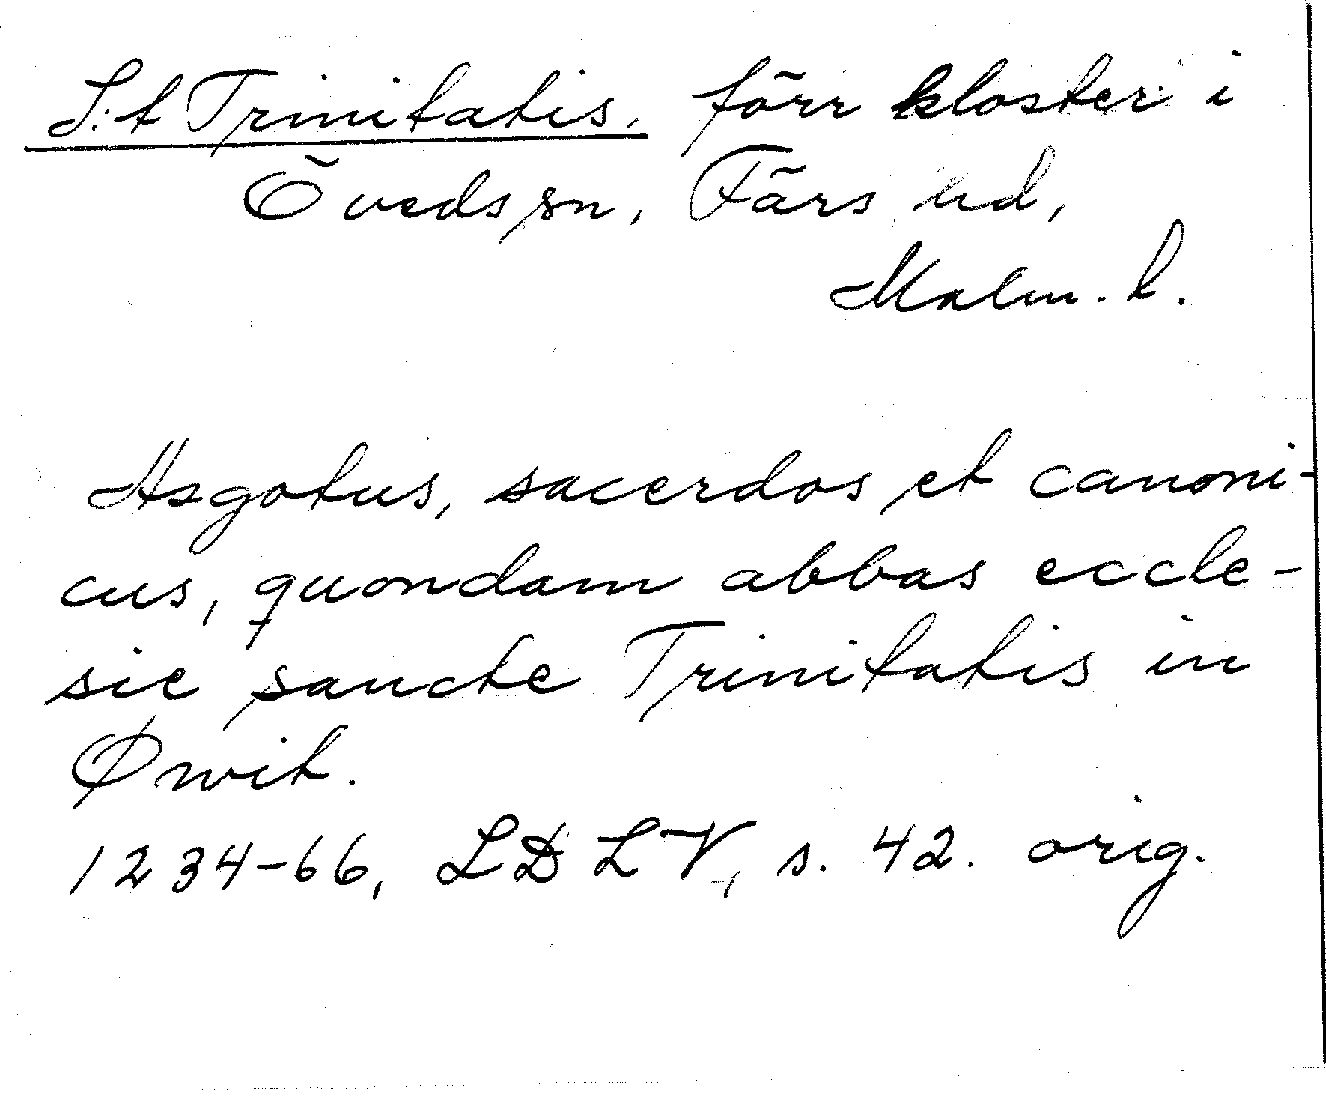 S:t Trinitatis. förr kloster i
Öveds sn, Färs hd,
Malm. l.
Asgotus, sacerdos et canoni-
cus, quondam abbas eccle-
sie sancte Trinitatis in
Øwit.
1234-66, LD LV, s. 42. orig.